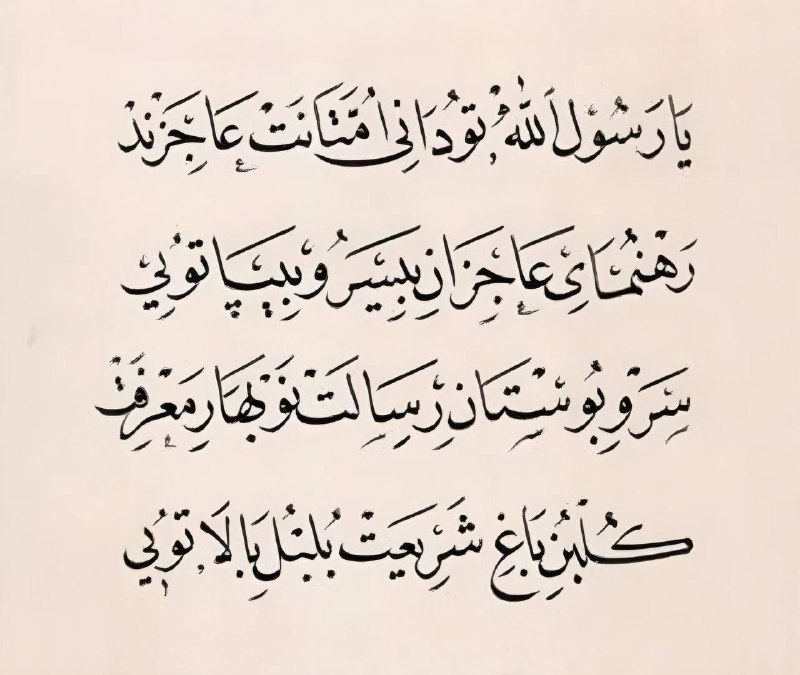 يَا رَسُوْلَ اللّٰهْ تُوْ دَانِی اُمَّتَانَتْ عَاجِزَنْدْ
رَهْنُمَایِ عَاجِزَانِ بِیسَرُ وْبِیپَا تُوئِي
سِرَوِ بُوسْتَانِ رِسَالَتْ نَوْبَهَارِ مَعْرِفَتْ
كُلْبُنِ بَاغِ شَرِيعَتْ بُلْبُلِ بَالَا تُوئِي